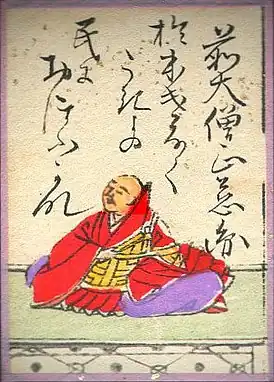 前大僧正慈圓
おほけなく
うきよの
民に
おほふかな